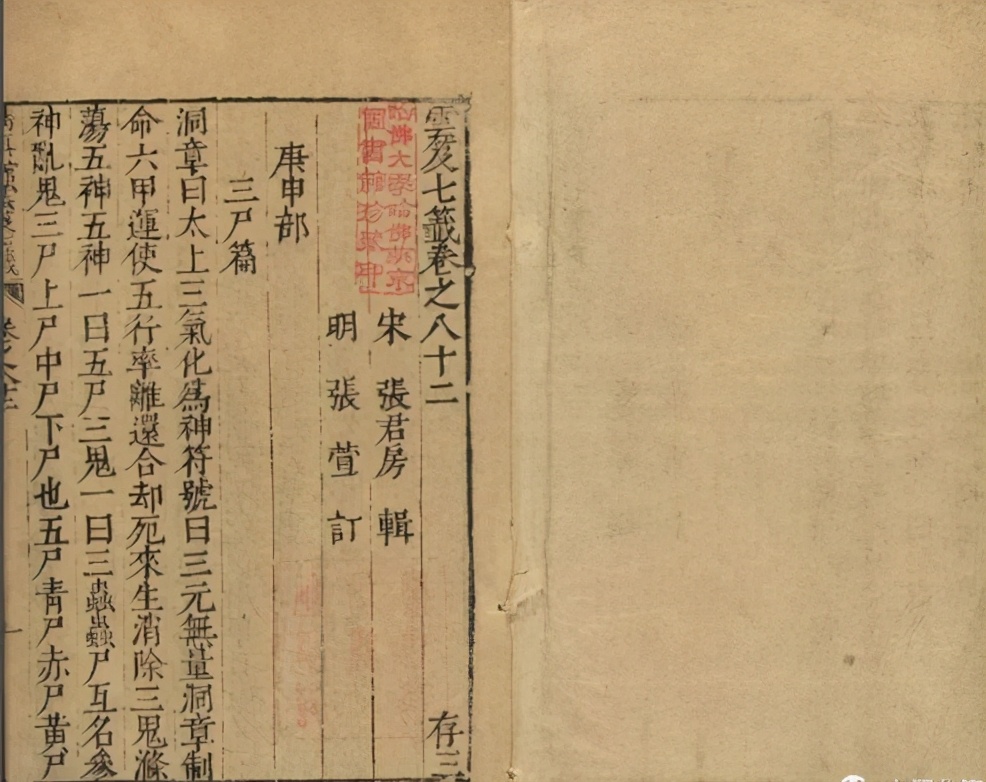 雲笈七籤卷之八十二 存三
哈佛大學哈佛燕京
圖書館珍藏印
宋 張君房 輯
明 張萱 訂
庚申部
三尸篇
洞章曰太上三氣化爲神符號曰三元無量洞章制
命六甲運使五行率離還合却死來生消除三鬼滌
蕩五神五神一曰五尸三鬼一曰三蟲蟲尸互名參
神亂鬼三尸上尸中尸下尸也五尸青尸赤尸黃尸